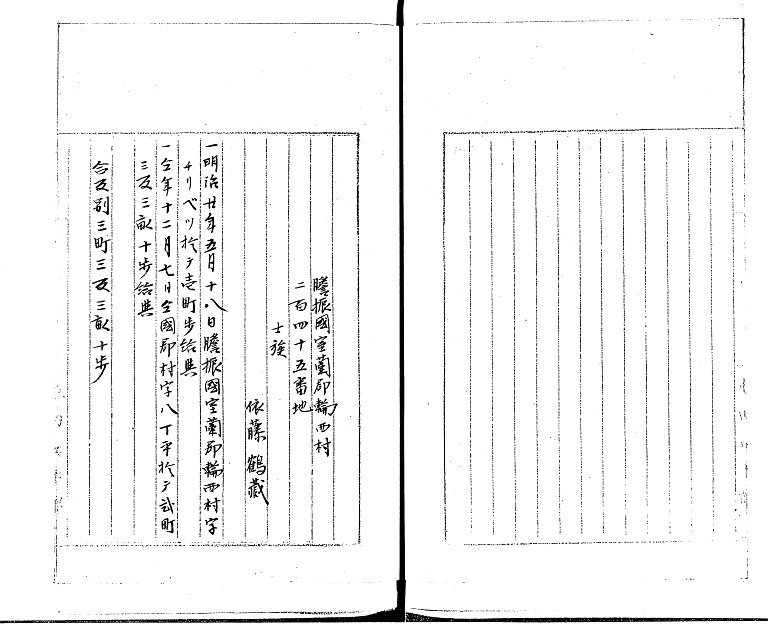 膽振國室蘭郡輪西村
二百四十五番地
士族
依藤鶴藏
一明治廿年五月十八日膽振國室蘭郡輪西村字
チリベツ於テ壱町歩給與
一仝年十二月七日仝國郡村字八丁平於テ弐町
三反三畝十歩給與
合反別三町三反三畝十歩